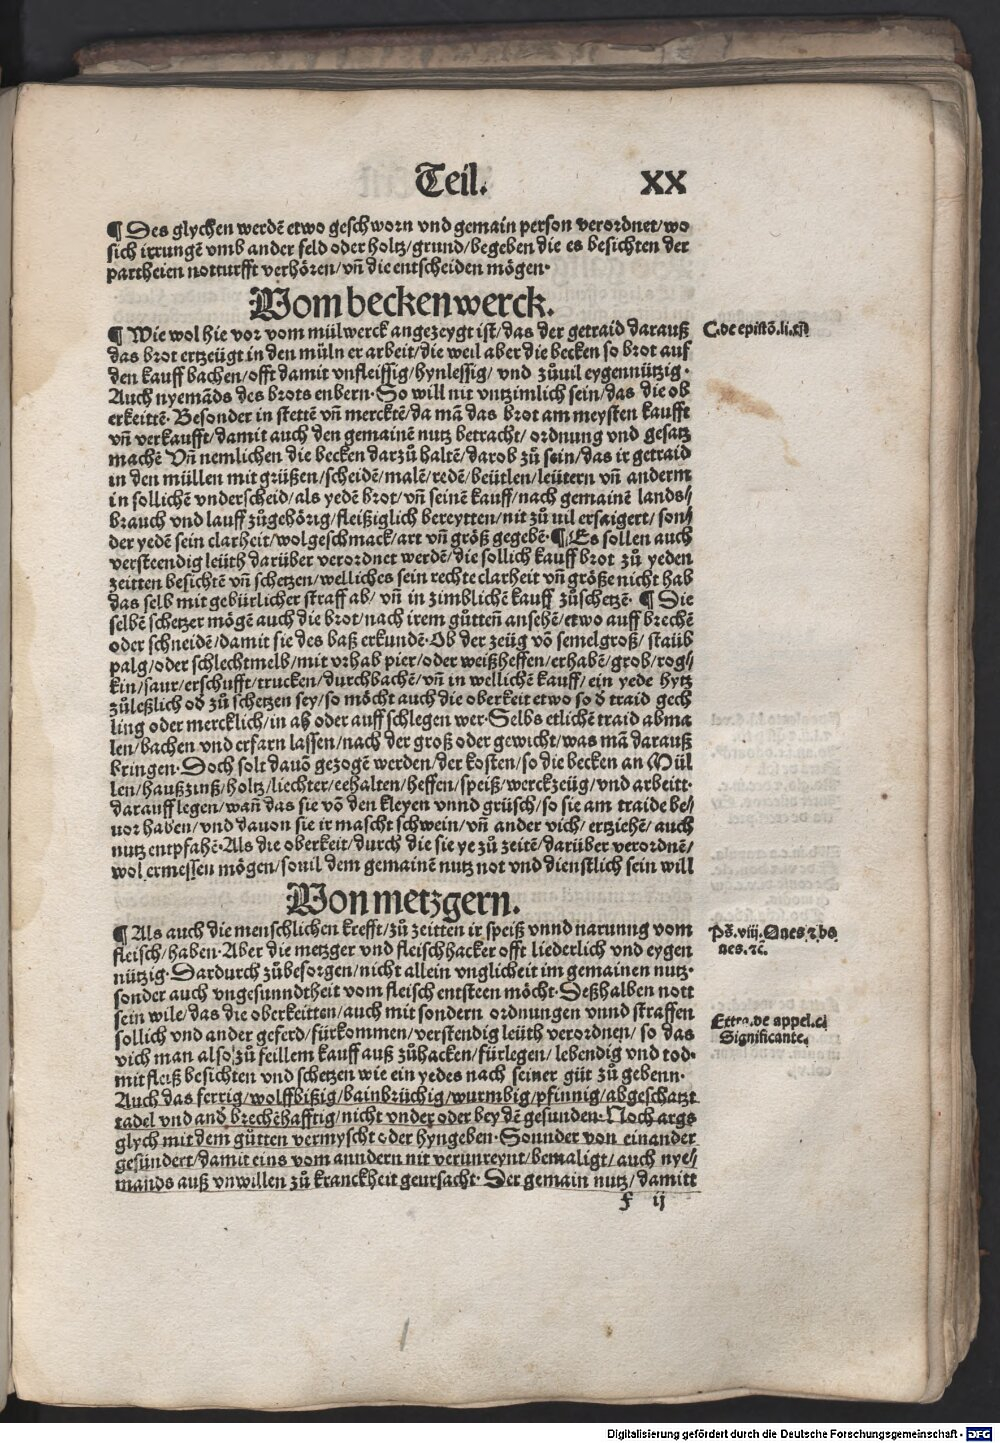 Teil. XX
¶ Des glychen werdē etwo geschworn vnd gemain person verordnet/wo
sich irrungē vmb ander feld oder holtz/grund/begeben die es besichten der
partheien notturfft verhören/vn̄ die entscheiden mögen·
Vom beckenwerck.
¶ Wie wol hie vor vom mülwerck angezeygt ist/das der getraid darauß
C.de epistō.li.
das brot ertzeügt in den müln er arbeit/die weil aber die becken so brot auf
den kauff bachen/offt damit vnfleissig/hynlessig/ vnd zůuil eygennützig·
Auch nyemāds des brots enbern·So will nit vntzimlich sein/das die ob
erkeittē·Besonder in stettē vn̄ mercktē/da mā das brot am meysten kaufft
vn̄ verkaufft/damit auch den gemainē nutz betracht/ ordnung vnd gesatz
machē Vn̄ nemlichen die becken darzů haltē/darob zů sein/das ir getraid
in den müllen mit grüßen/scheidē/malē/redē/beütlen/leütern vn̄ anderm
in sollichē vnderscheid/als yedē brot/vn̄ seinē kauff/nach gemainē lands/
brauch vnd lauff zůgehörig/fleißiglich bereytten/nit zů uil ersaigert/ son/
der yedē sein clarheit/wolgeschmack/art vn̄ größ gegebē·¶ Es sollen auch
versteendig leüth darüber verordnet werdē/die sollich kauff brot zů yeden
zeitten besichtē vn̄ schetzen/welliches sein rechte clarheit vn̄ größe nicht hab
das selb mit gebürlicher straff ab/ vn̄ in zimblichē kauff zůschetzē· ¶ Die
selbē schetzer mögē auch die brot/nach irem gůtten̄ ansehē/etwo auff brechē
oder schneidē/damit sie des baß erkundē·Ob der zeüg vō semelgroß/ staüb
palg/oder schlechtmelb/mit vrhab pier/oder weißheffen/erhabē/grob/rog/
kin/saur/erschufft/trucken/durchbachē/vn̄ in wellichē kauff/ ein yede hytz
zůleßlich od zů schetzen sey/so möcht auch die oberkeit etwo so d traid gech
ling oder mercklich/in ab oder auff schlegen wer·Selbs etlichē traid abma
len/bachen vnd erfarn lassen/nach der groß oder gewicht/was mā darauß
bringen·Doch solt dauō gezogē werden/der kosten/so die becken an Mül
len/haußzinß/holtz/liechter/eehalten/heffen/speiß/werckzeüg/vnd arbeitt·
darauff legen/wan̄ das sie vō den kleyen vnnd grüsch/so sie am traide be/
uor haben/vnd dauon sie ir mascht schwein/vn̄ ander vich/ ertziehē/ auch
nutz entpfahē·Als die oberkeit/durch die sie ye zů zeitē/darüber verordnē/
wol ermessen mögen/souil dem gemainē nutz not vnd dienstlich sein will
Von metzgern.
¶ Als auch die menschlichen krefft/zů zeitten ir speiß vnnd narunng vom
fleisch/haben·Aber die metzger vnd fleischhacker offt liederlich vnd eygen
nützig·Dardurch zůbesorgen/nicht allein vnglicheit im gemainen nutz·
Ps̄.viij.Oues ⁊ bo
ues.⁊c̄.
sonder auch vngesunndtheit vom fleisch entsteen möcht·Deßhalben nott
sein wile/das die oberkeitten/auch mit sondern ordnungen vnnd straffen
sollich vnd ander geferd/fürkommen/verstendig leüth verordnen/ so das
Extra.de appel.ci
Significante.
vich man also zů feillem kauff auß zůhacken/fürlegen/ lebendig vnd tod·
mit fleiß besichten vnd schetzen wie ein yedes nach seiner güt zů gebenn·
Auch das ferrig/wolffbißig/bainbrüchig/wurmbig/pfinnig/abgeschatzt
tadel vnd and brechēhafftig/nicht vnder oder bey dē gesunden·Noch args
glych mit dem gůtten vermyscht oder hyngeben·Sounder von einander
gesündert/damit eins vom anndern nit verunreynt/bemaligt/ auch nye/
mands auß vnwillen zů kranckheit geursacht·Der gemain nutz/ damitt
f ij
Digitalisierung gefördert durch die Deutsche Forschungsgemeinschaft - DFG